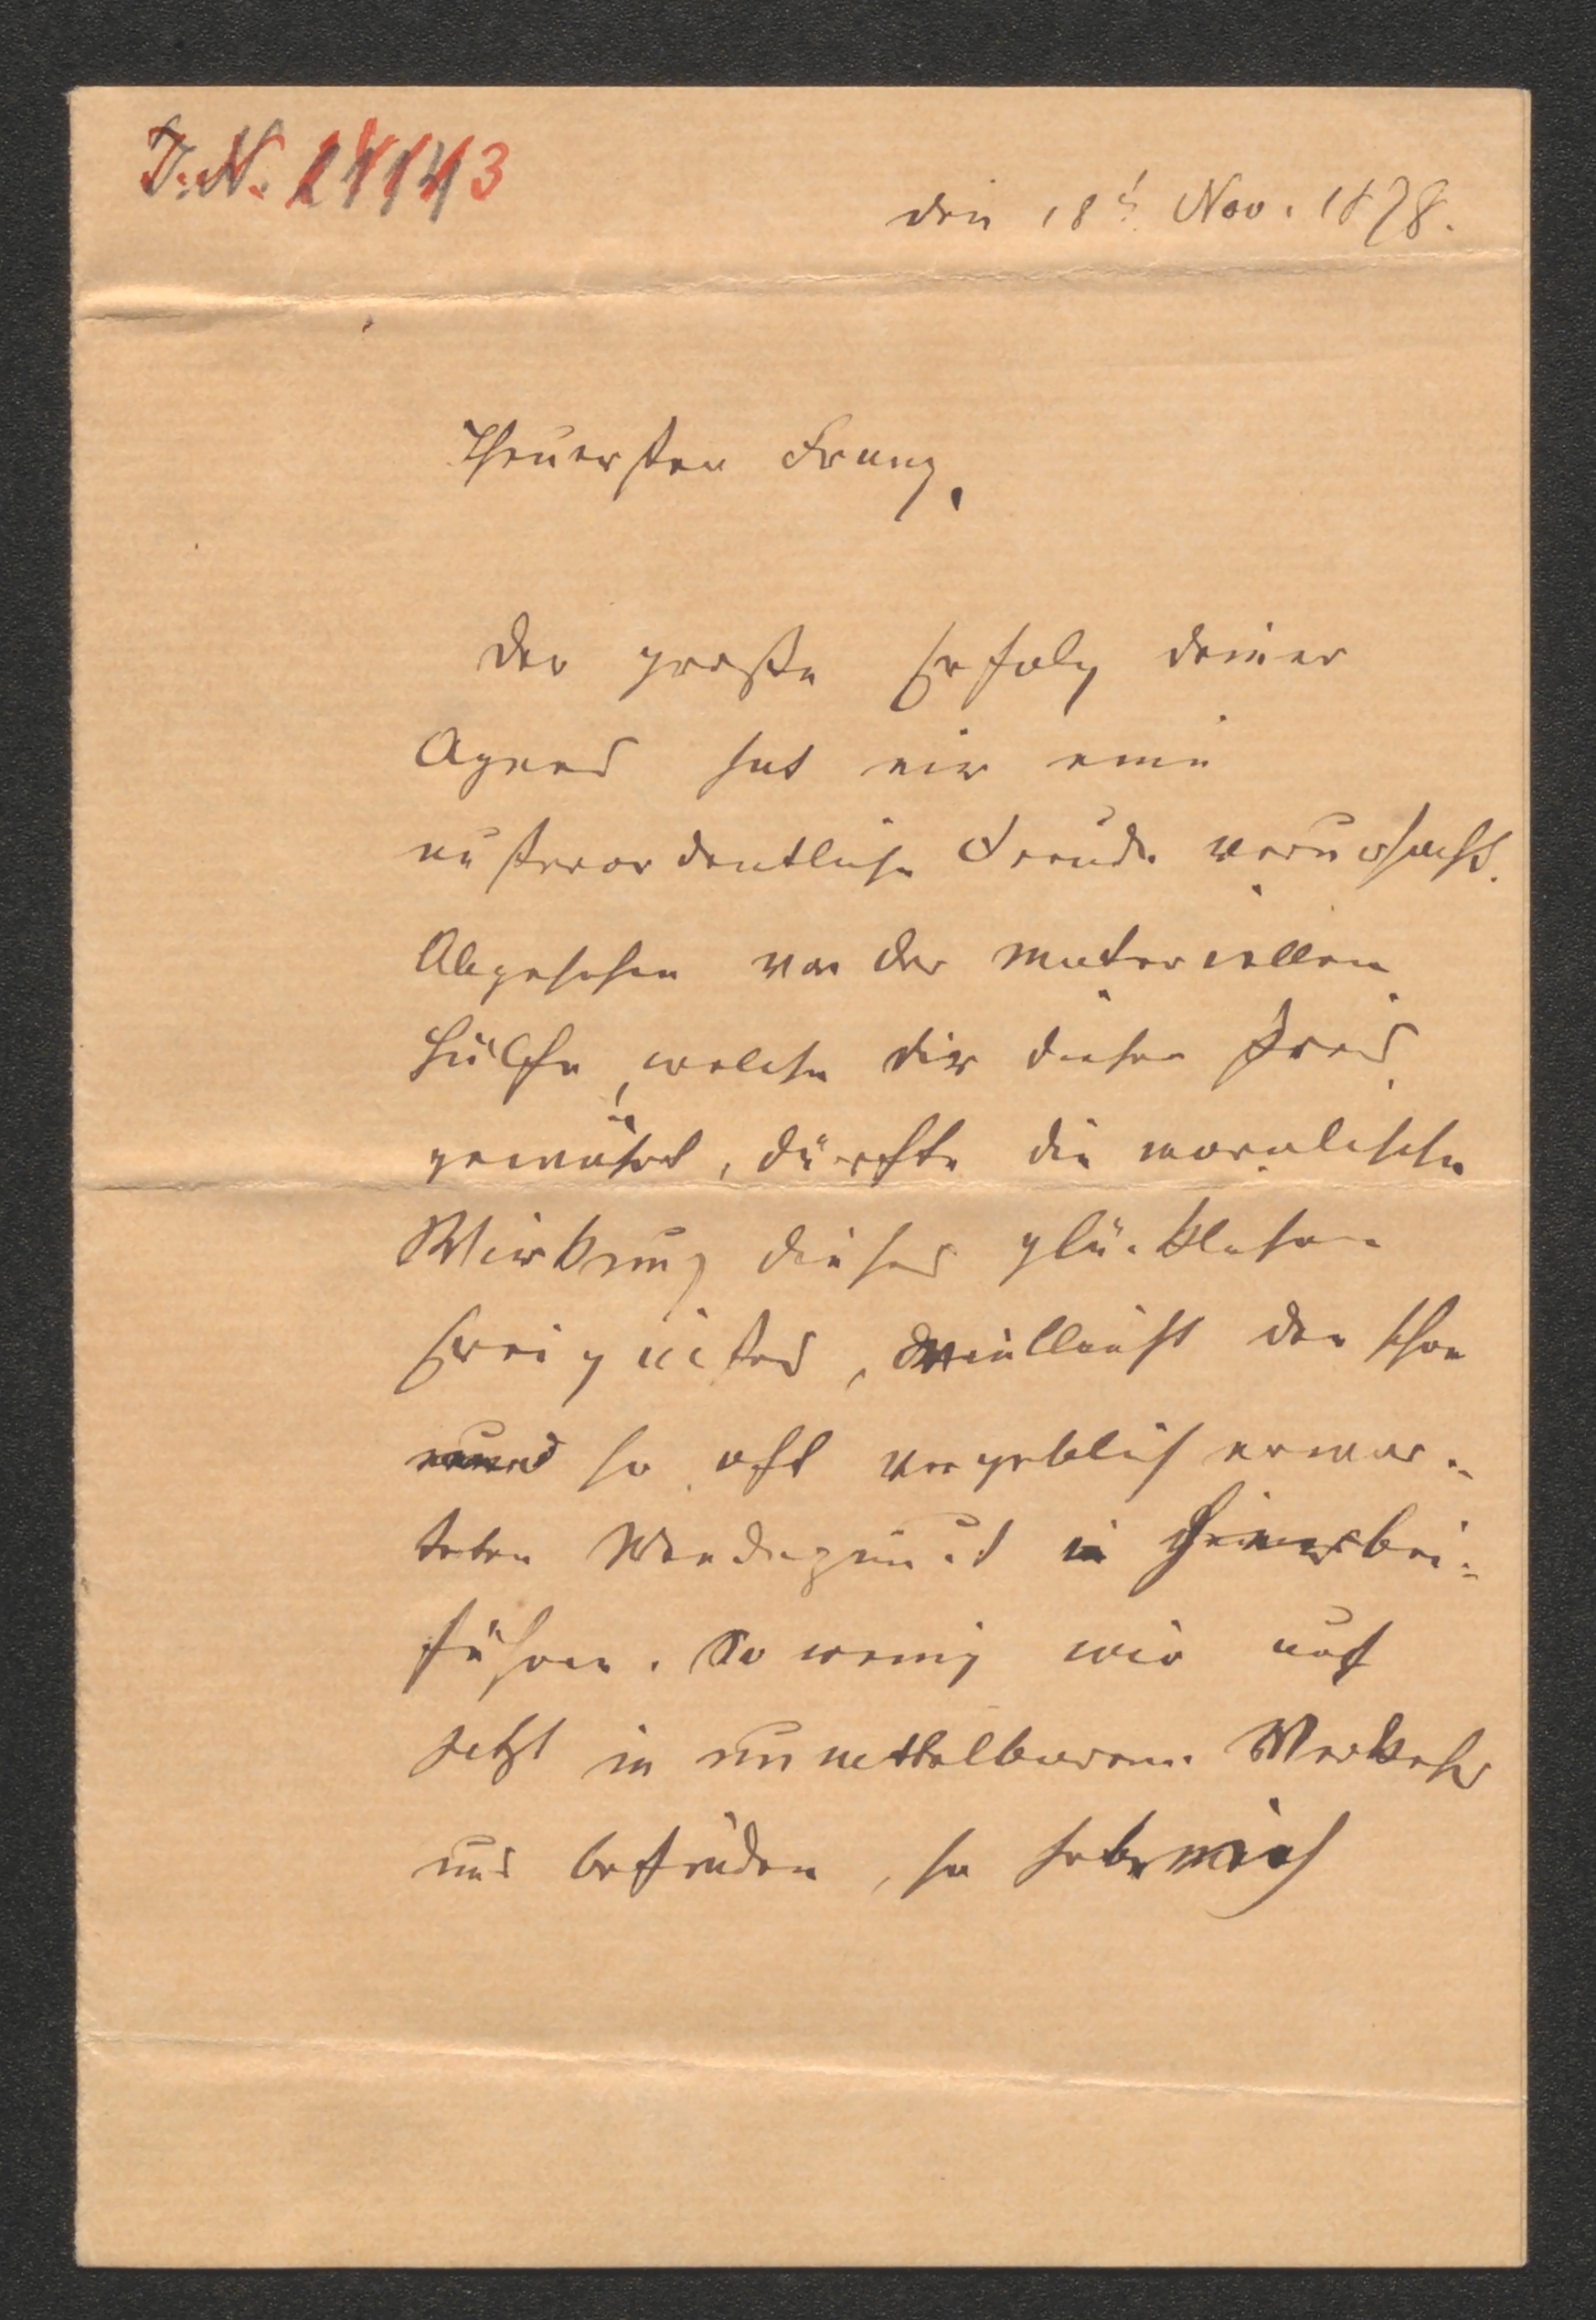 I.N. 24143
den 18t. Nov. 1878.
Theuerster Franz,
Der große Erfolg deiner
Agnes hat mir eine
außerordentliche Freude verursacht.
Abgesehen von der materiellen
Hülfe, welche dir dieser Preis
gewährt, dürfte die moralische
Wirkung dieses glücklichen
Ereignißes, vielleicht den schon
so oft vergeblich erwar-
teten Wendepunct herbei-
führen. So wenig wir auch
jetzt in unmittelbarem Verkehr
uns befinden, so habe mich